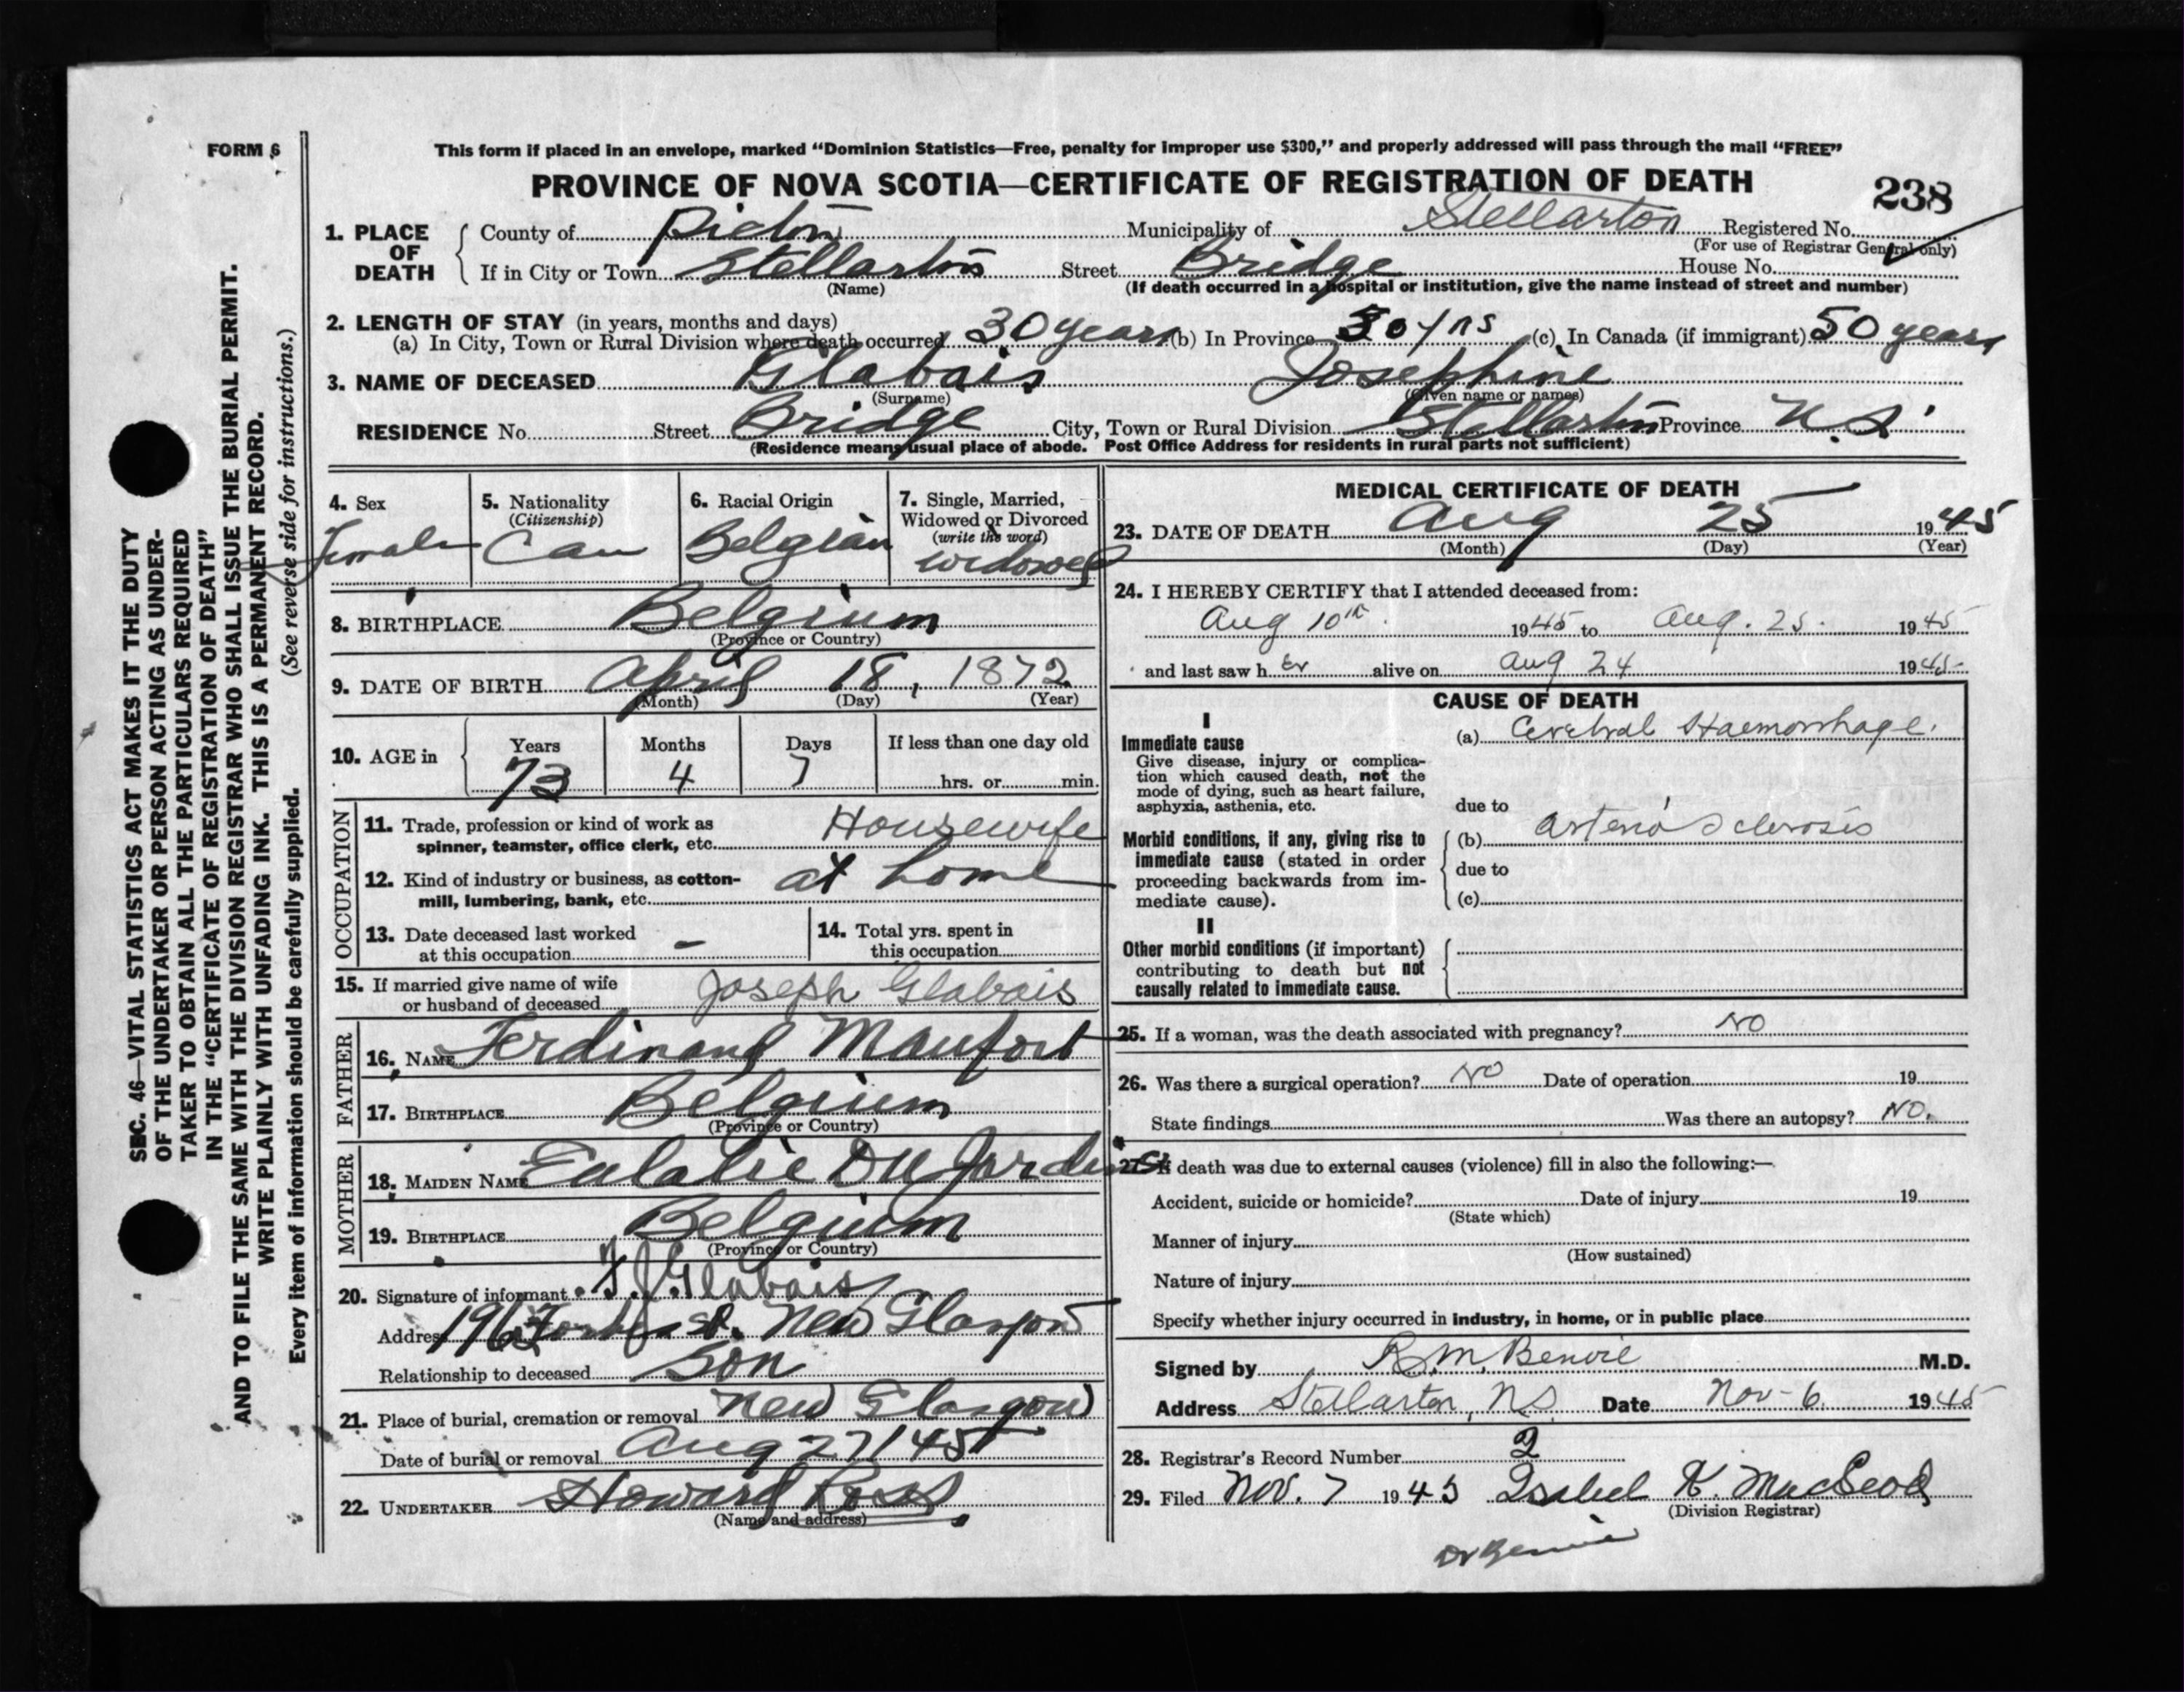 FORM 6
This form if placed in an envelope, marked "Dominion Statistics—Free, penalty for improper use $300," and properly addressed will pass through the mail "FREE"
PROVINCE OF NOVA SCOTIA—CERTIFICATE OF REGISTRATION OF DEATH
238
1. PLACE OF DEATH County of Pictou Municipality of Stellarton Registered No.
(For use of Registrar General only)
If in City or Town Stellarton Street Bridge House No.
(Name) (If death occurred in a hospital or institution, give the name instead of street and number)
2. LENGTH OF STAY (in years, months and days)
(a) In City, Town or Rural Division where death occurred 30 years (b) In Province 30 yrs (c) In Canada (if immigrant) 50 years
3. NAME OF DECEASED Glabais Josephine
(Surname) (Given name or names)
RESIDENCE No. Street Bridge City, Town or Rural Division Stellarton Province N.S.
(Residence means usual place of abode. Post Office Address for residents in rural parts not sufficient)
4. Sex Female
5. Nationality (Citizenship) Can
6. Racial Origin Belgian
7. Single, Married, Widowed or Divorced (write the word) widowed
8. BIRTHPLACE Belgium
(Province or Country)
9. DATE OF BIRTH April 18, 1872
(Month) (Day) (Year)
10. AGE in Years 73 Months 4 Days 7 If less than one day old hrs. or min.
OCCUPATION
11. Trade, profession or kind of work as spinner, teamster, office clerk, etc. Housewife
12. Kind of industry or business, as cotton-mill, lumbering, bank, etc. at home
13. Date deceased last worked at this occupation –
14. Total yrs. spent in this occupation
15. If married give name of wife or husband of deceased Joseph Glabais
FATHER
16. NAME Ferdinand Maufort
17. BIRTHPLACE Belgium
(Province or Country)
MOTHER
18. MAIDEN NAME Eulalie
19. BIRTHPLACE Belgium
(Province or Country)
20. Signature of informant F. J. Glabais
Address St. New Glasgow
Relationship to deceased Son
21. Place of burial, cremation or removal New Glasgow
Date of burial or removal Aug 27/45
22. UNDERTAKER Howard Ross
(Name and address)
MEDICAL CERTIFICATE OF DEATH
23. DATE OF DEATH Aug 25 1945
(Month) (Day) (Year)
24. I HEREBY CERTIFY that I attended deceased from:
Aug 10th 1945 to Aug. 25. 1945
and last saw h er alive on Aug 24 1945
CAUSE OF DEATH
I
Immediate cause (a) Cerebral Haemorrhage.
Give disease, injury or complica-
tion which caused death, not the
mode of dying, such as heart failure,
asphyxia, asthenia, etc.
due to
Morbid conditions, if any, giving rise to (b) arterio sclerosis
immediate cause (stated in order
due to
proceeding backwards from im-
mediate cause). (c)
II
Other morbid conditions (if important)
contributing to death but not
causally related to immediate cause.
25. If a woman, was the death associated with pregnancy? NO
26. Was there a surgical operation? NO Date of operation 19
State findings Was there an autopsy? NO.
27. If death was due to external causes (violence) fill in also the following:—
Accident, suicide or homicide? Date of injury 19
(State which)
Manner of injury
(How sustained)
Nature of injury
Specify whether injury occurred in industry, in home, or in public place
Signed by R.M. Benvie M.D.
Address Stellarton, N.S. Date Nov-6. 1945
28. Registrar's Record Number 2
29. Filed Nov. 7 1945 Isabel K. MacLeod
(Division Registrar)
Dr Benvie
SEC. 46—VITAL STATISTICS ACT MAKES IT THE DUTY
OF THE UNDERTAKER OR PERSON ACTING AS UNDER-
TAKER TO OBTAIN ALL THE PARTICULARS REQUIRED
IN THE "CERTIFICATE OF REGISTRATION OF DEATH"
AND TO FILE THE SAME WITH THE DIVISION REGISTRAR WHO SHALL ISSUE THE BURIAL PERMIT.
WRITE PLAINLY WITH UNFADING INK. THIS IS A PERMANENT RECORD.
Every item of information should be carefully supplied. (See reverse side for instructions.)